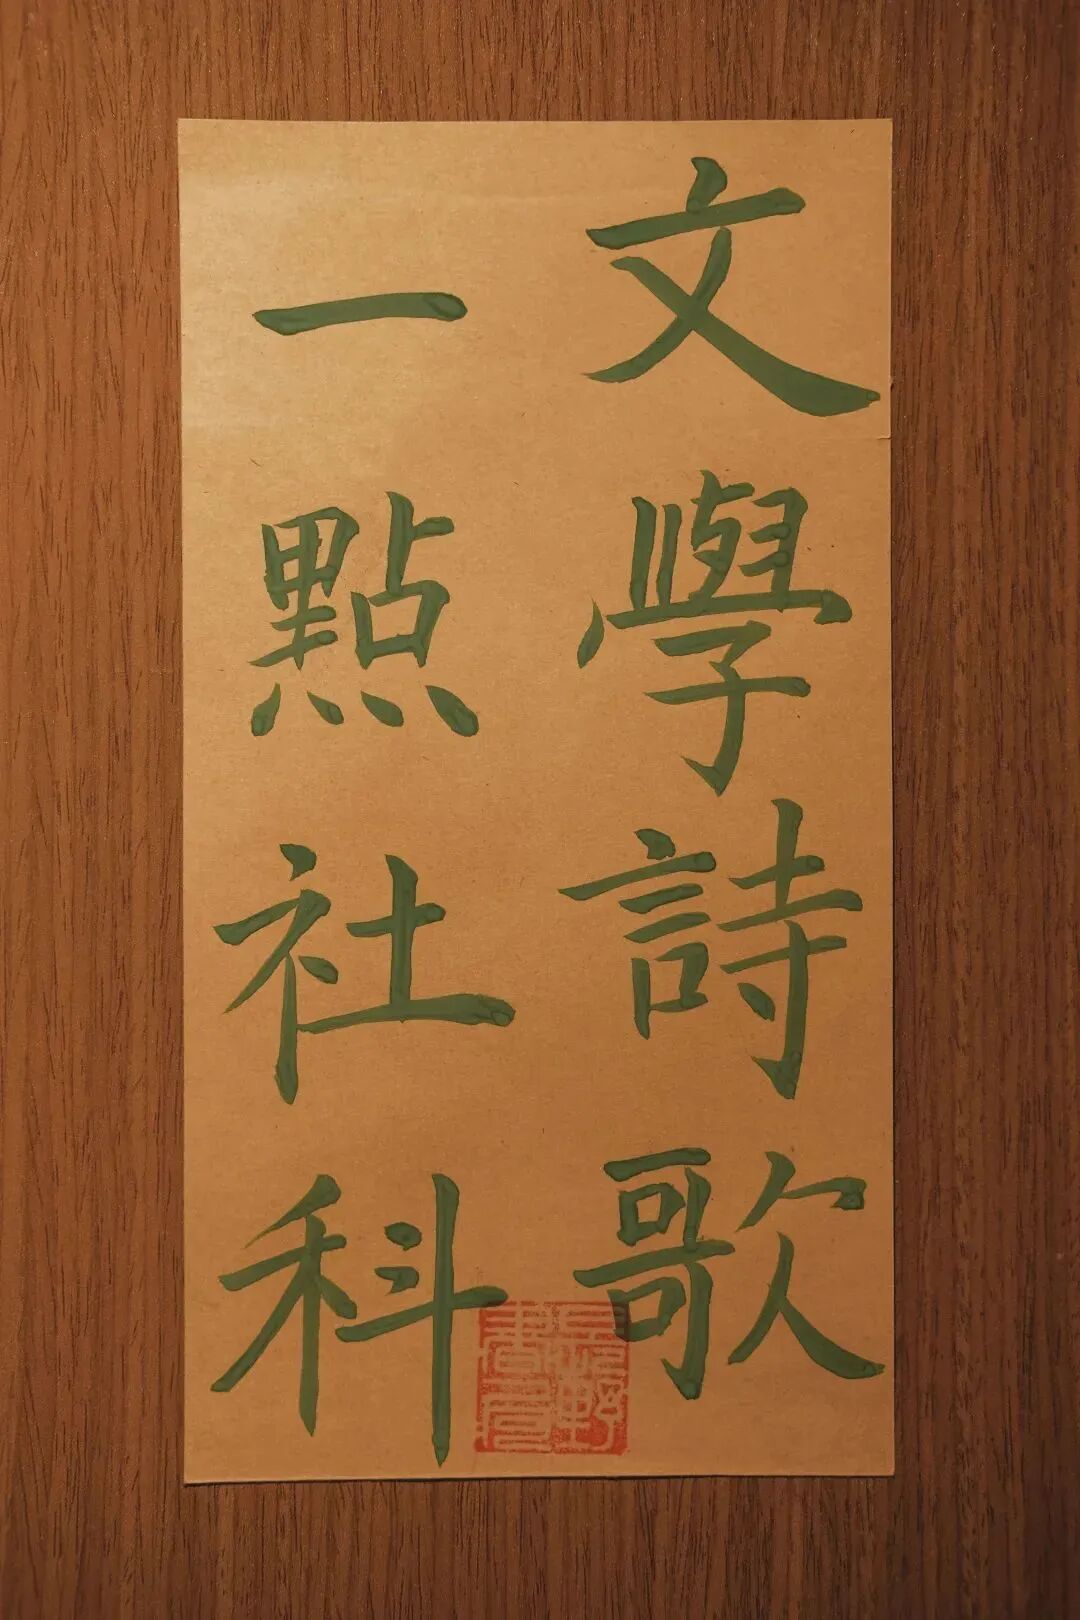 文學詩歌
一點社科